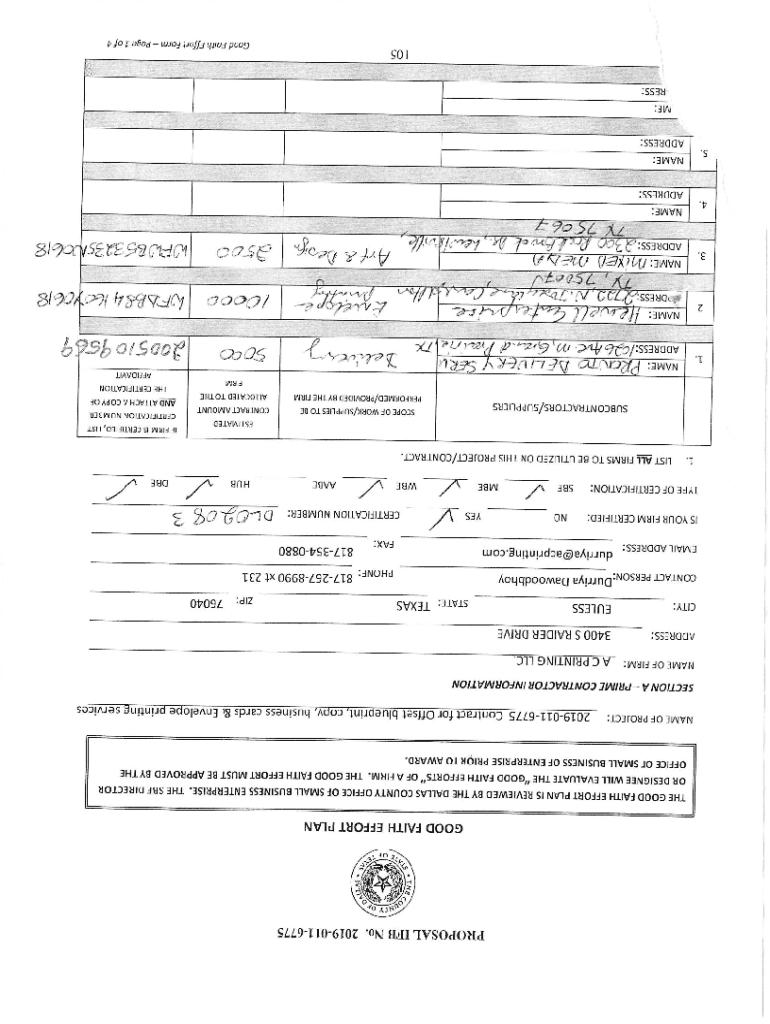 PROPOSAL IFB No. 2019-011-6775
THE COUNTY OF DALLAS
STATE OF TEXAS
GOOD FAITH EFFORT PLAN
THE GOOD FAITH EFFORT PLAN IS REVIEWED BY THE DALLAS COUNTY OFFICE OF SMALL BUSINESS ENTERPRISE. THE SBE DIRECTOR
OR DESIGNEE WILL EVALUATE THE "GOOD FAITH EFFORTS" OF A FIRM. THE GOOD FAITH EFFORT MUST BE APPROVED BY THE
OFFICE OF SMALL BUSINESS OF ENTERPRISE PRIOR TO AWARD.
NAME OF PROJECT: 2019-011-6775 Contract for Offset blueprint, copy, business cards & Envelope printing services
SECTION A - PRIME CONTRACTOR INFORMATION
NAME OF FIRM: A C PRINTING LLC.
ADDRESS: 3400 S RAIDER DRIVE
CITY: EULESS STATE: TEXAS ZIP: 76040
CONTACT PERSON: Durriya Dawoodbhoy PHONE: 817-257-8990 xt 231
EMAIL ADDRESS: durriya@acprinting.com FAX: 817-354-0880
IS YOUR FIRM CERTIFIED: NO YES ✓ CERTIFICATION NUMBER: DL02083
TYPE OF CERTIFICATION: SBE ✓ MBE ✓ WBE ✓ AABC HUB ✓ DBE ✓
1. LIST ALL FIRMS TO BE UTILIZED ON THIS PROJECT/CONTRACT.
SUBCONTRACTORS/SUPPLIERS
SCOPE OF WORK/SUPPLIES TO BE
PERFORMED/PROVIDED BY THE FIRM
ESTIMATED
CONTRACT AMOUNT
ALLOCATED TO THE
FIRM
IF FIRM IS CERTIFIED, LIST
CERTIFICATION NUMBER
AND ATTACH A COPY OF
THE CERTIFICATION
AFFIDAVIT
1. NAME: PRONTO DELIVERY SERV
ADDRESS: 1026 Ave M, Grand Prairie TX
Delivery 5000 2005109569
2 NAME: Hewell Enterprise
ADDRESS: 2722 N. Josey Lane, Carrollton
TX, 75007
Envelope printing 10000
3. NAME: MIXED MEDIA
ADDRESS: 2300 Lewisville,
TX 75067
Art & Design 2500
4. NAME:
ADDRESS:
5. NAME:
ADDRESS:
ME:
RESS:
105
Good Faith Effort Form – Page 1 of 4